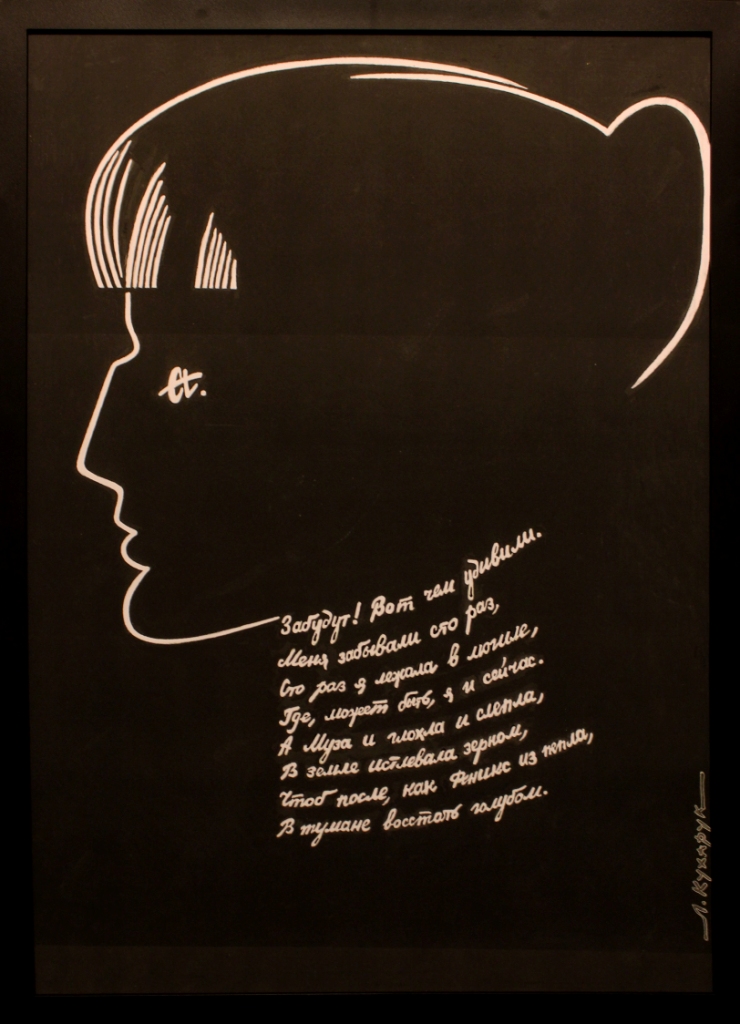 а.
Забудут! Вот чем удивили.
Меня забывали сто раз,
Сто раз я лежала в могиле,
Где, может быть, я и сейчас.
А Муза и глохла и слепла,
В земле истлевала зерном,
Чтоб после, как Феникс из пепла,
В тумане восстать голубом.
Л. Кухарук